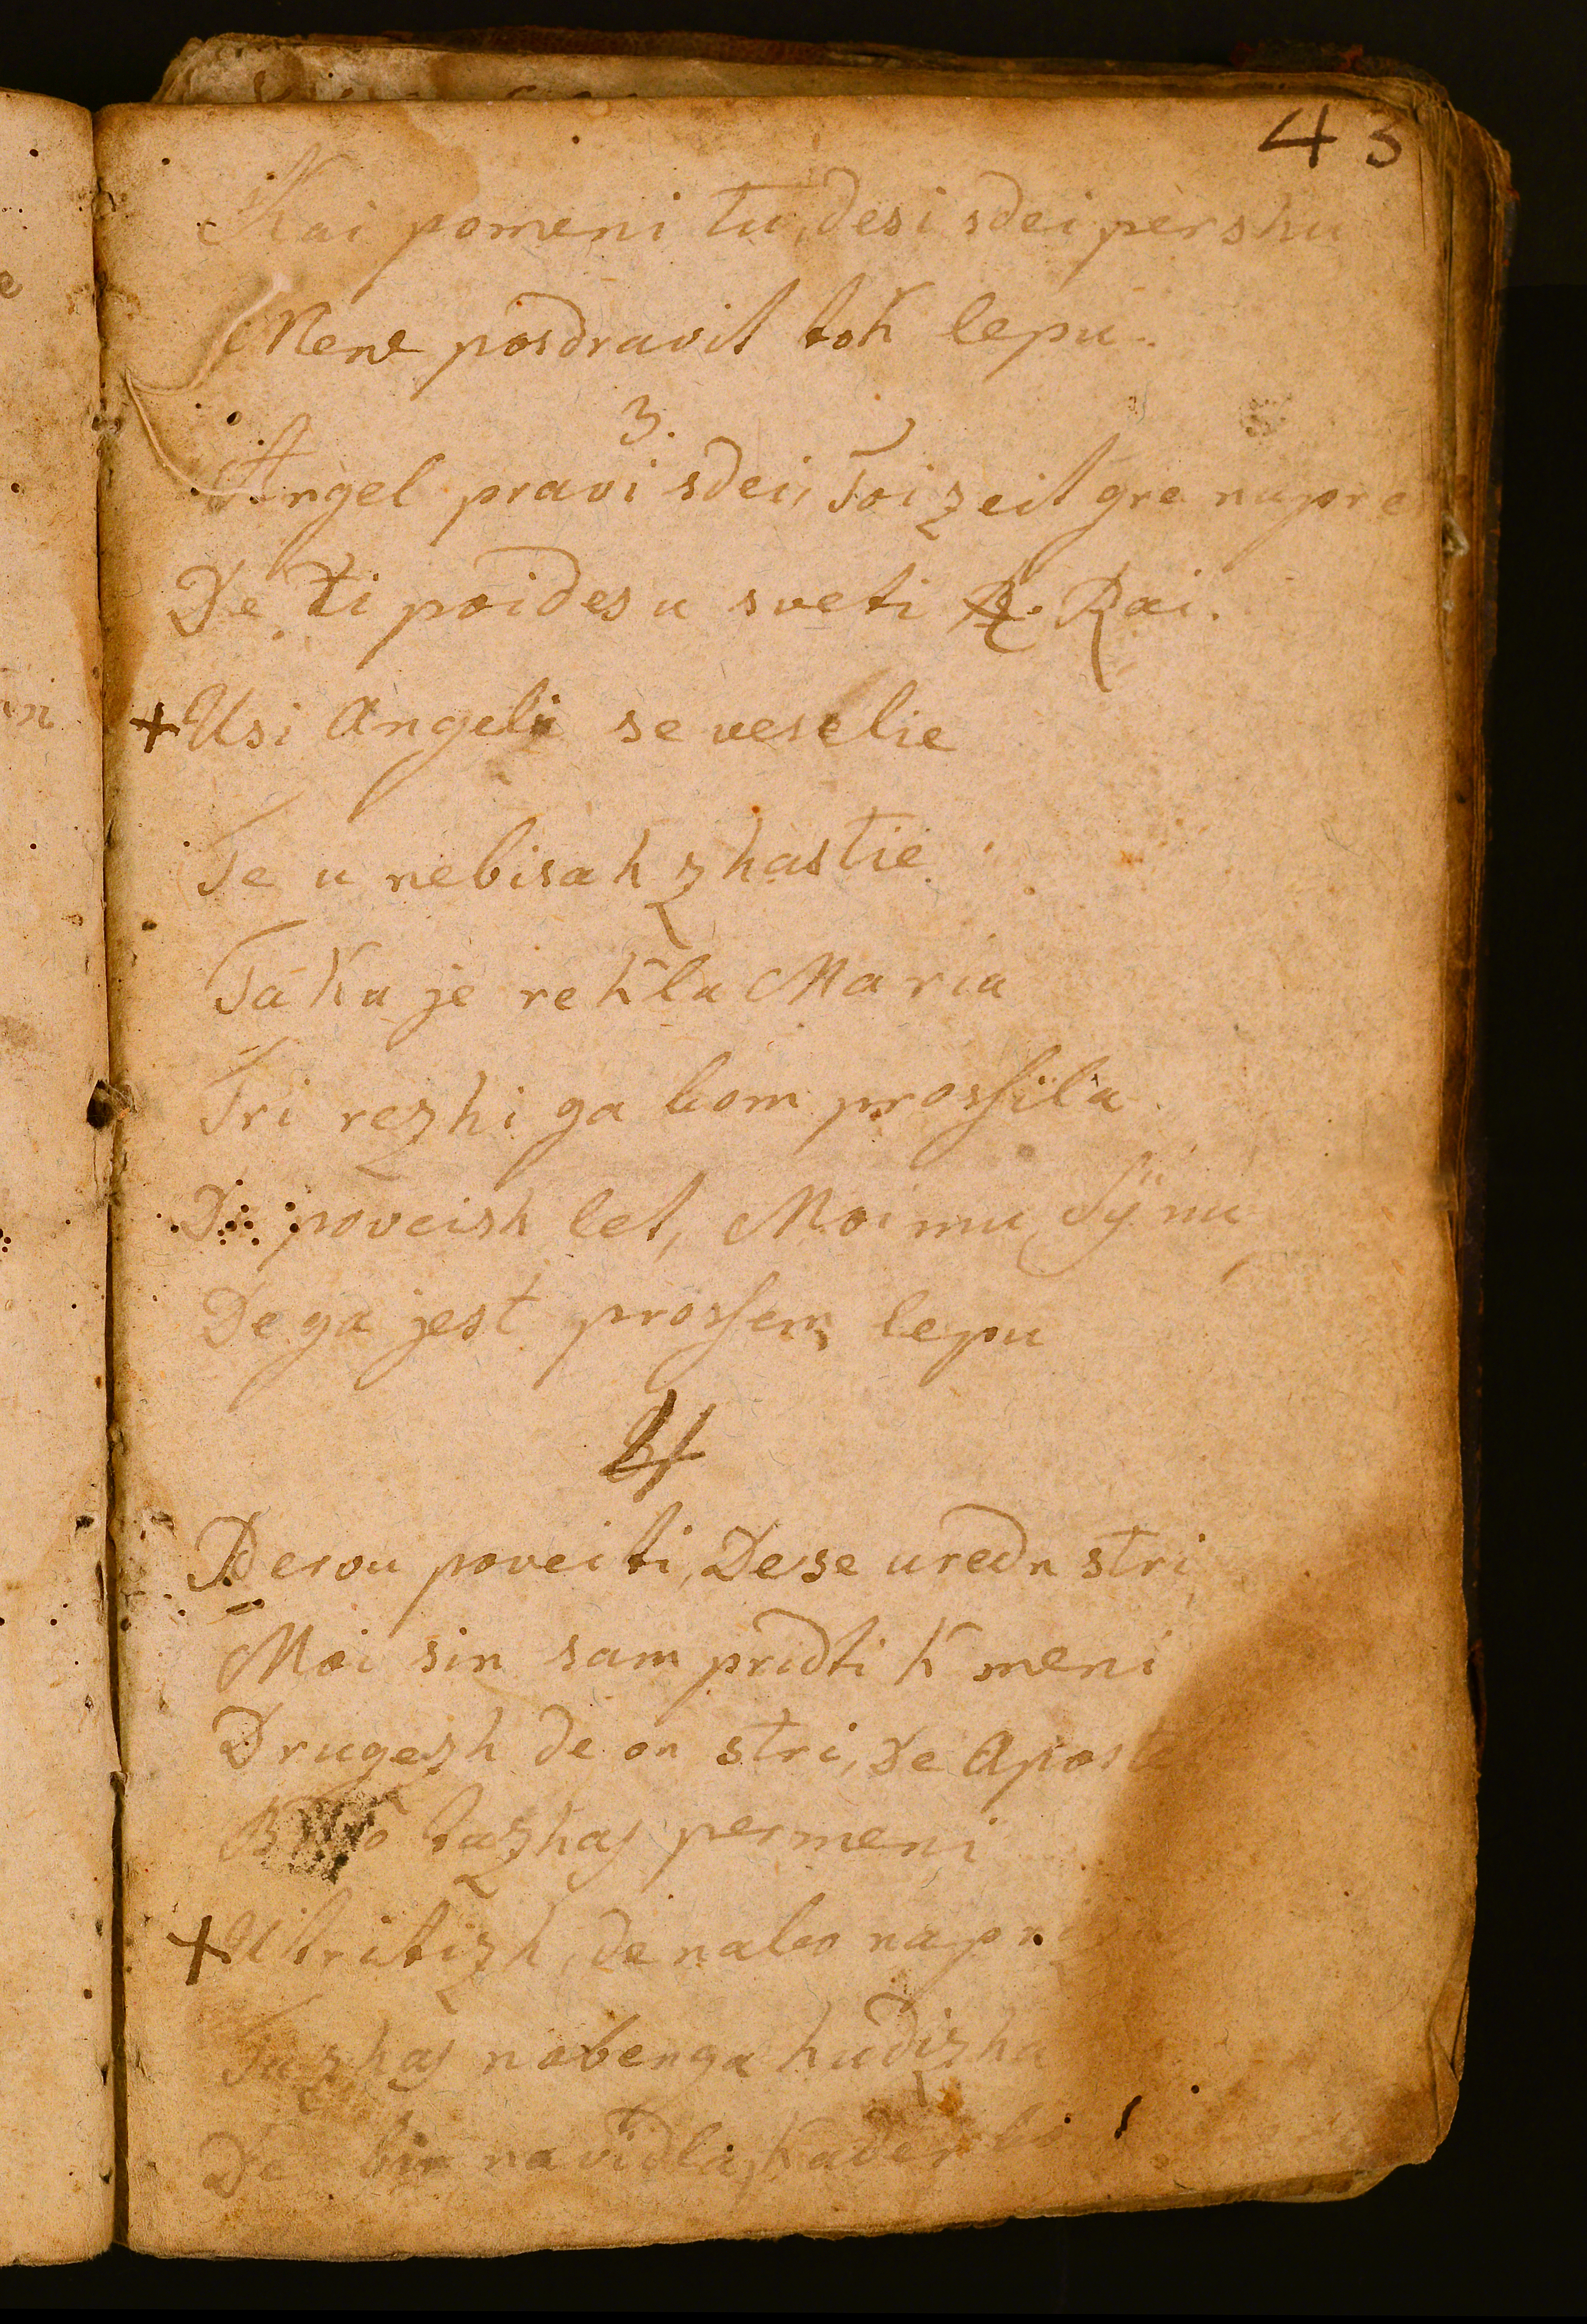 43
Kai pomeni tu, desi sdei pershu
Mene posdravit tok lepu.
3.
Angel pravi sdei, Toi zeit gre napre
De ti poides u sveti Rai.
+ Usi Angeli se veselie
Te u nebisah zhastie
Taku je rekla Maria
Tri rezhi ga bom prosſila
De poveish let, Moimu Synu
De ga jest prosſem lepu
4
Pervu poveiti, De se uredn stri
Moi sin sam pridti K meni
Drugezh de on stri, De Aposte
tazhas permeni
+ U tritizh, de nabo
Tazhas nobenga hudizha
De bi na vidla, Kader